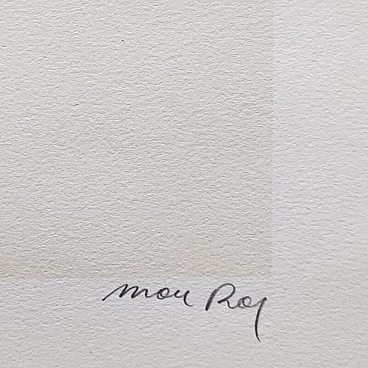 Man Ray